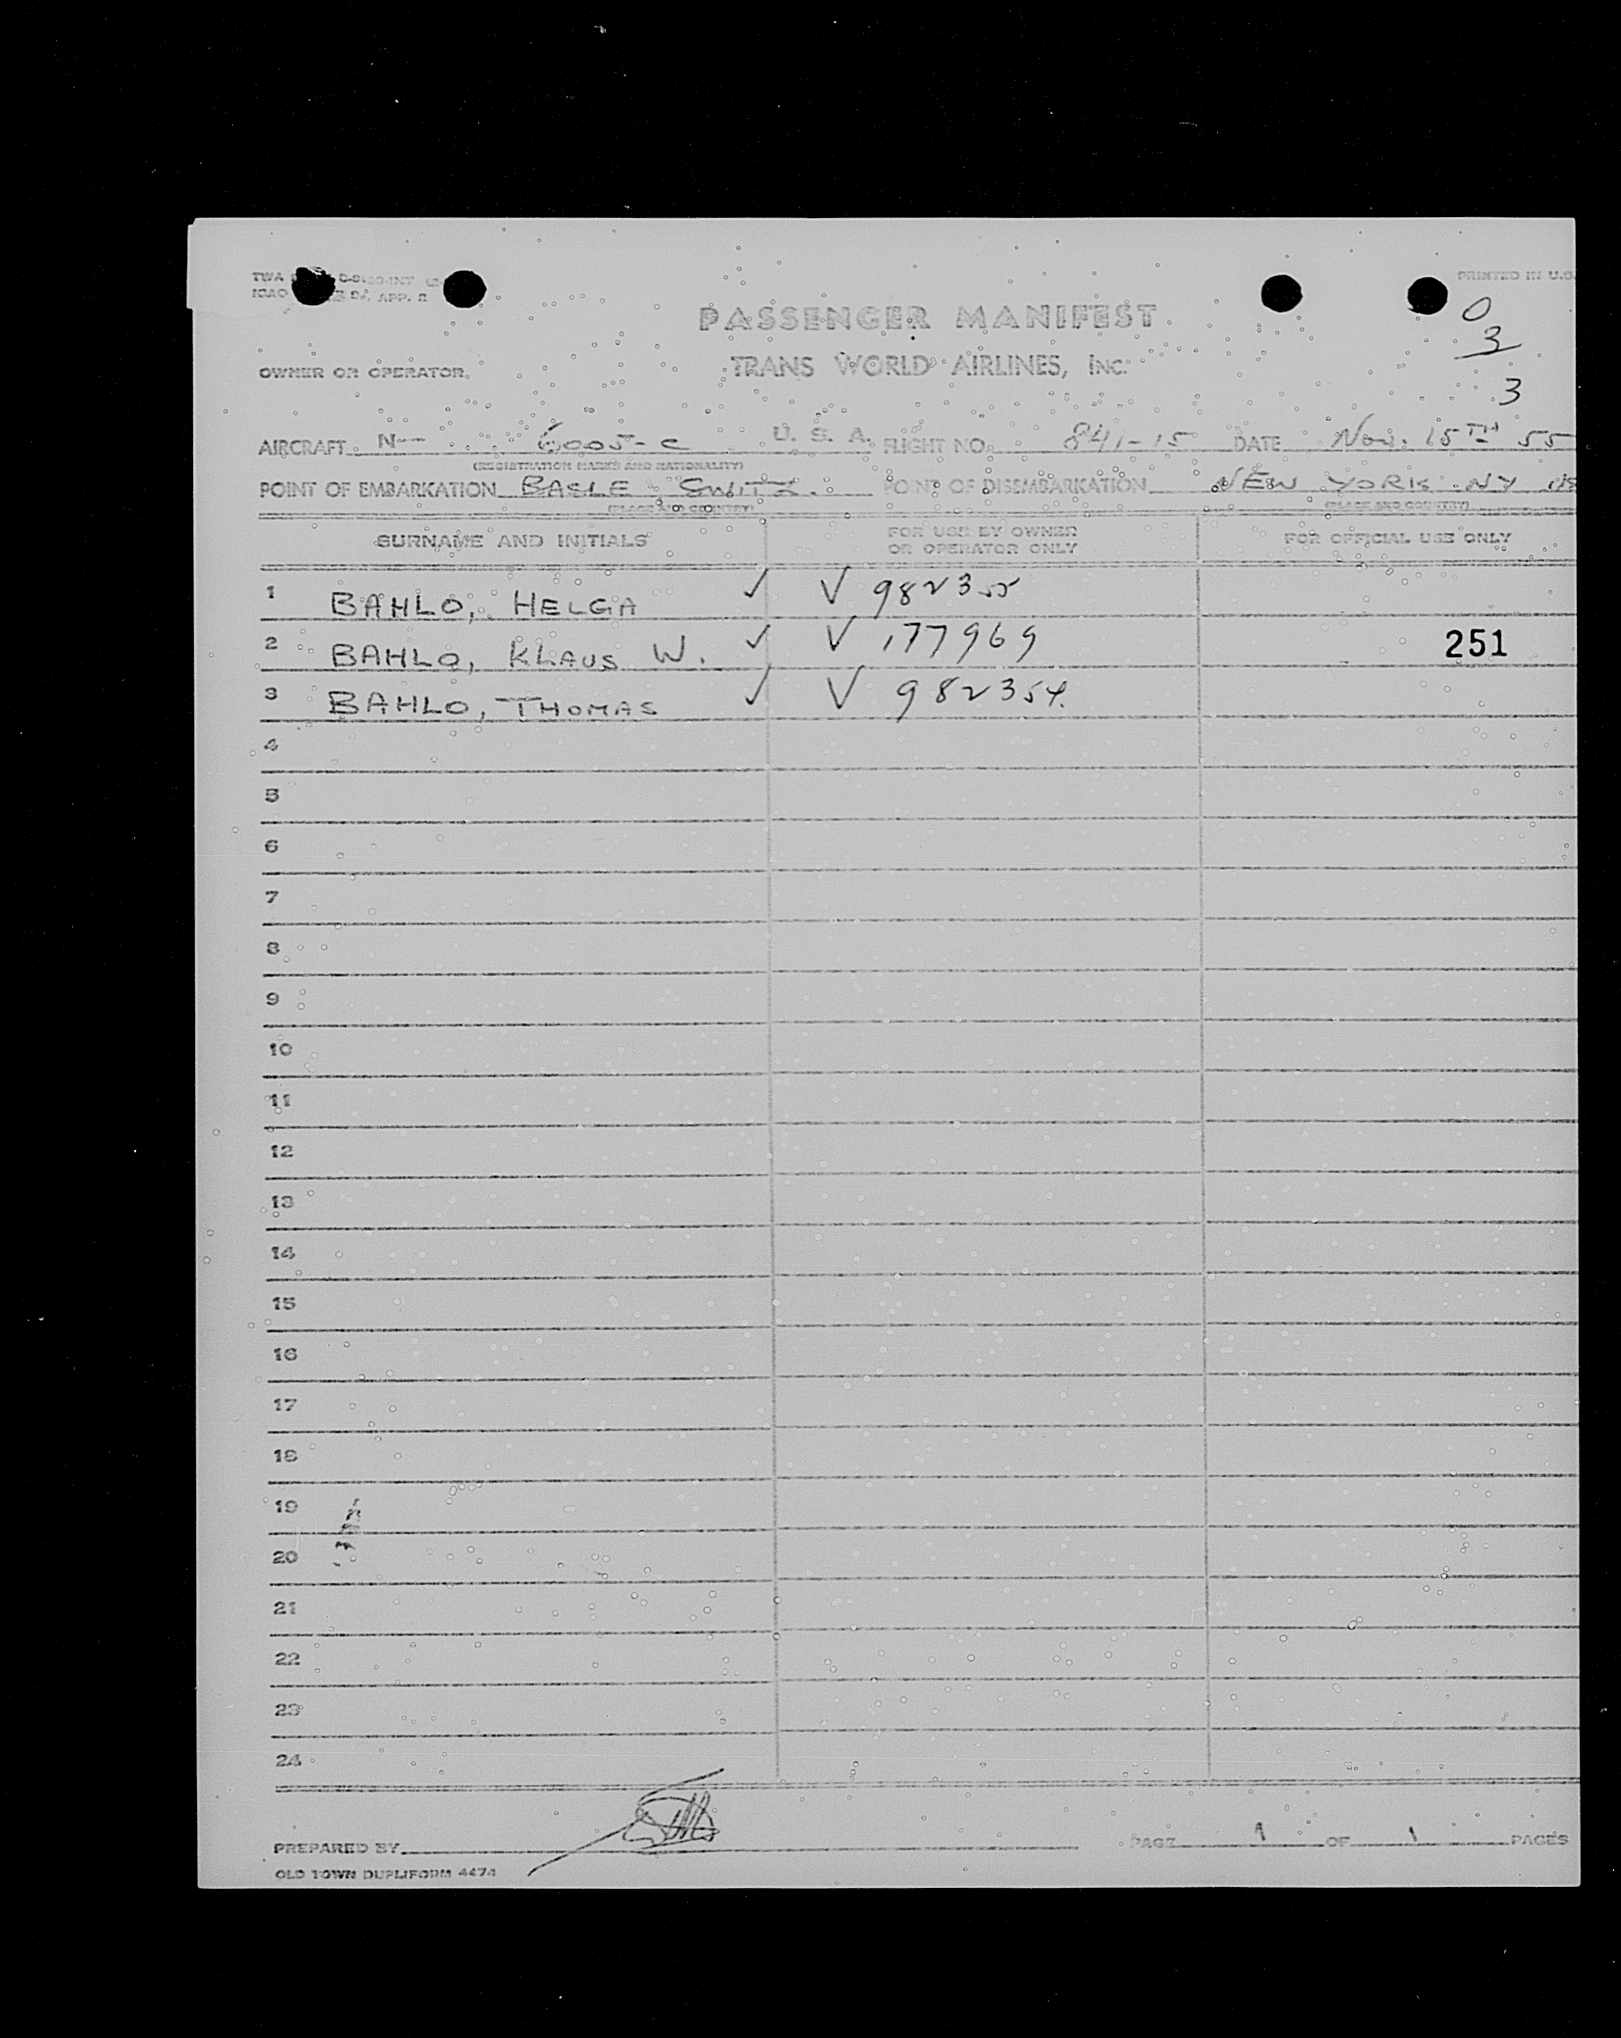 PRINTED IN U.S.
PASSENGER MANIFEST
0
3
OWNER OR OPERATOR. TRANS WORLD AIRLINES, INC.
3
AIRCRAFT N-- 6005-C U. S. A. FLIGHT NO. 841-15 DATE Nov. 15TH 55
(REGISTRATION MARKS AND NATIONALITY)
POINT OF EMBARKATION BASLE - SWITZ. POINT OF DISEMBARKATION NEW YORK NY US
(PLACE AND COUNTRY) (PLACE AND COUNTRY)
SURNAME AND INITIALS FOR USE BY OWNER OR OPERATOR ONLY FOR OFFICIAL USE ONLY
1 BAHLO, HELGA ✓ V 982355
2 BAHLO, KLAUS W. ✓ V 177969 251
3 BAHLO, THOMAS ✓ V 982354.
4
5
6
7
8
9
10
11
12
13
14
15
16
17
18
19
20
21
22
23
24
PREPARED BY PAGE 1 OF 1 PAGES
OLD TOWN DUPLIFORM 4474